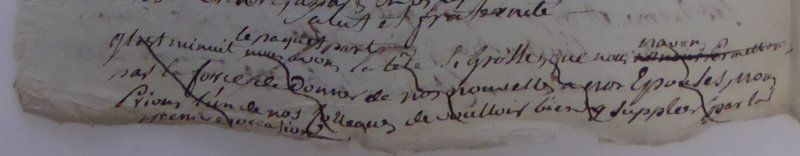 salut et fraternité
il est minuit le paquet part nous avons la tête si grosse que nous n'avons
pas la force de donner de nos nouvelles a nos Epouses, nous
Prions l'un de nos collegues de vouloir bien y suppléer par la
premiere occasion